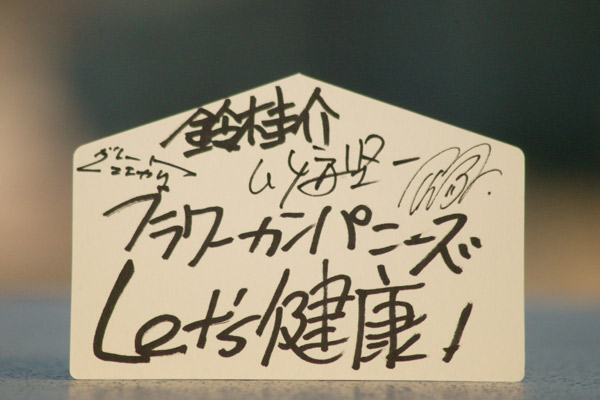 鈴木圭介
グレート
マエカワ
竹安堅一
フラワーカンパニーズ
Let's健康!